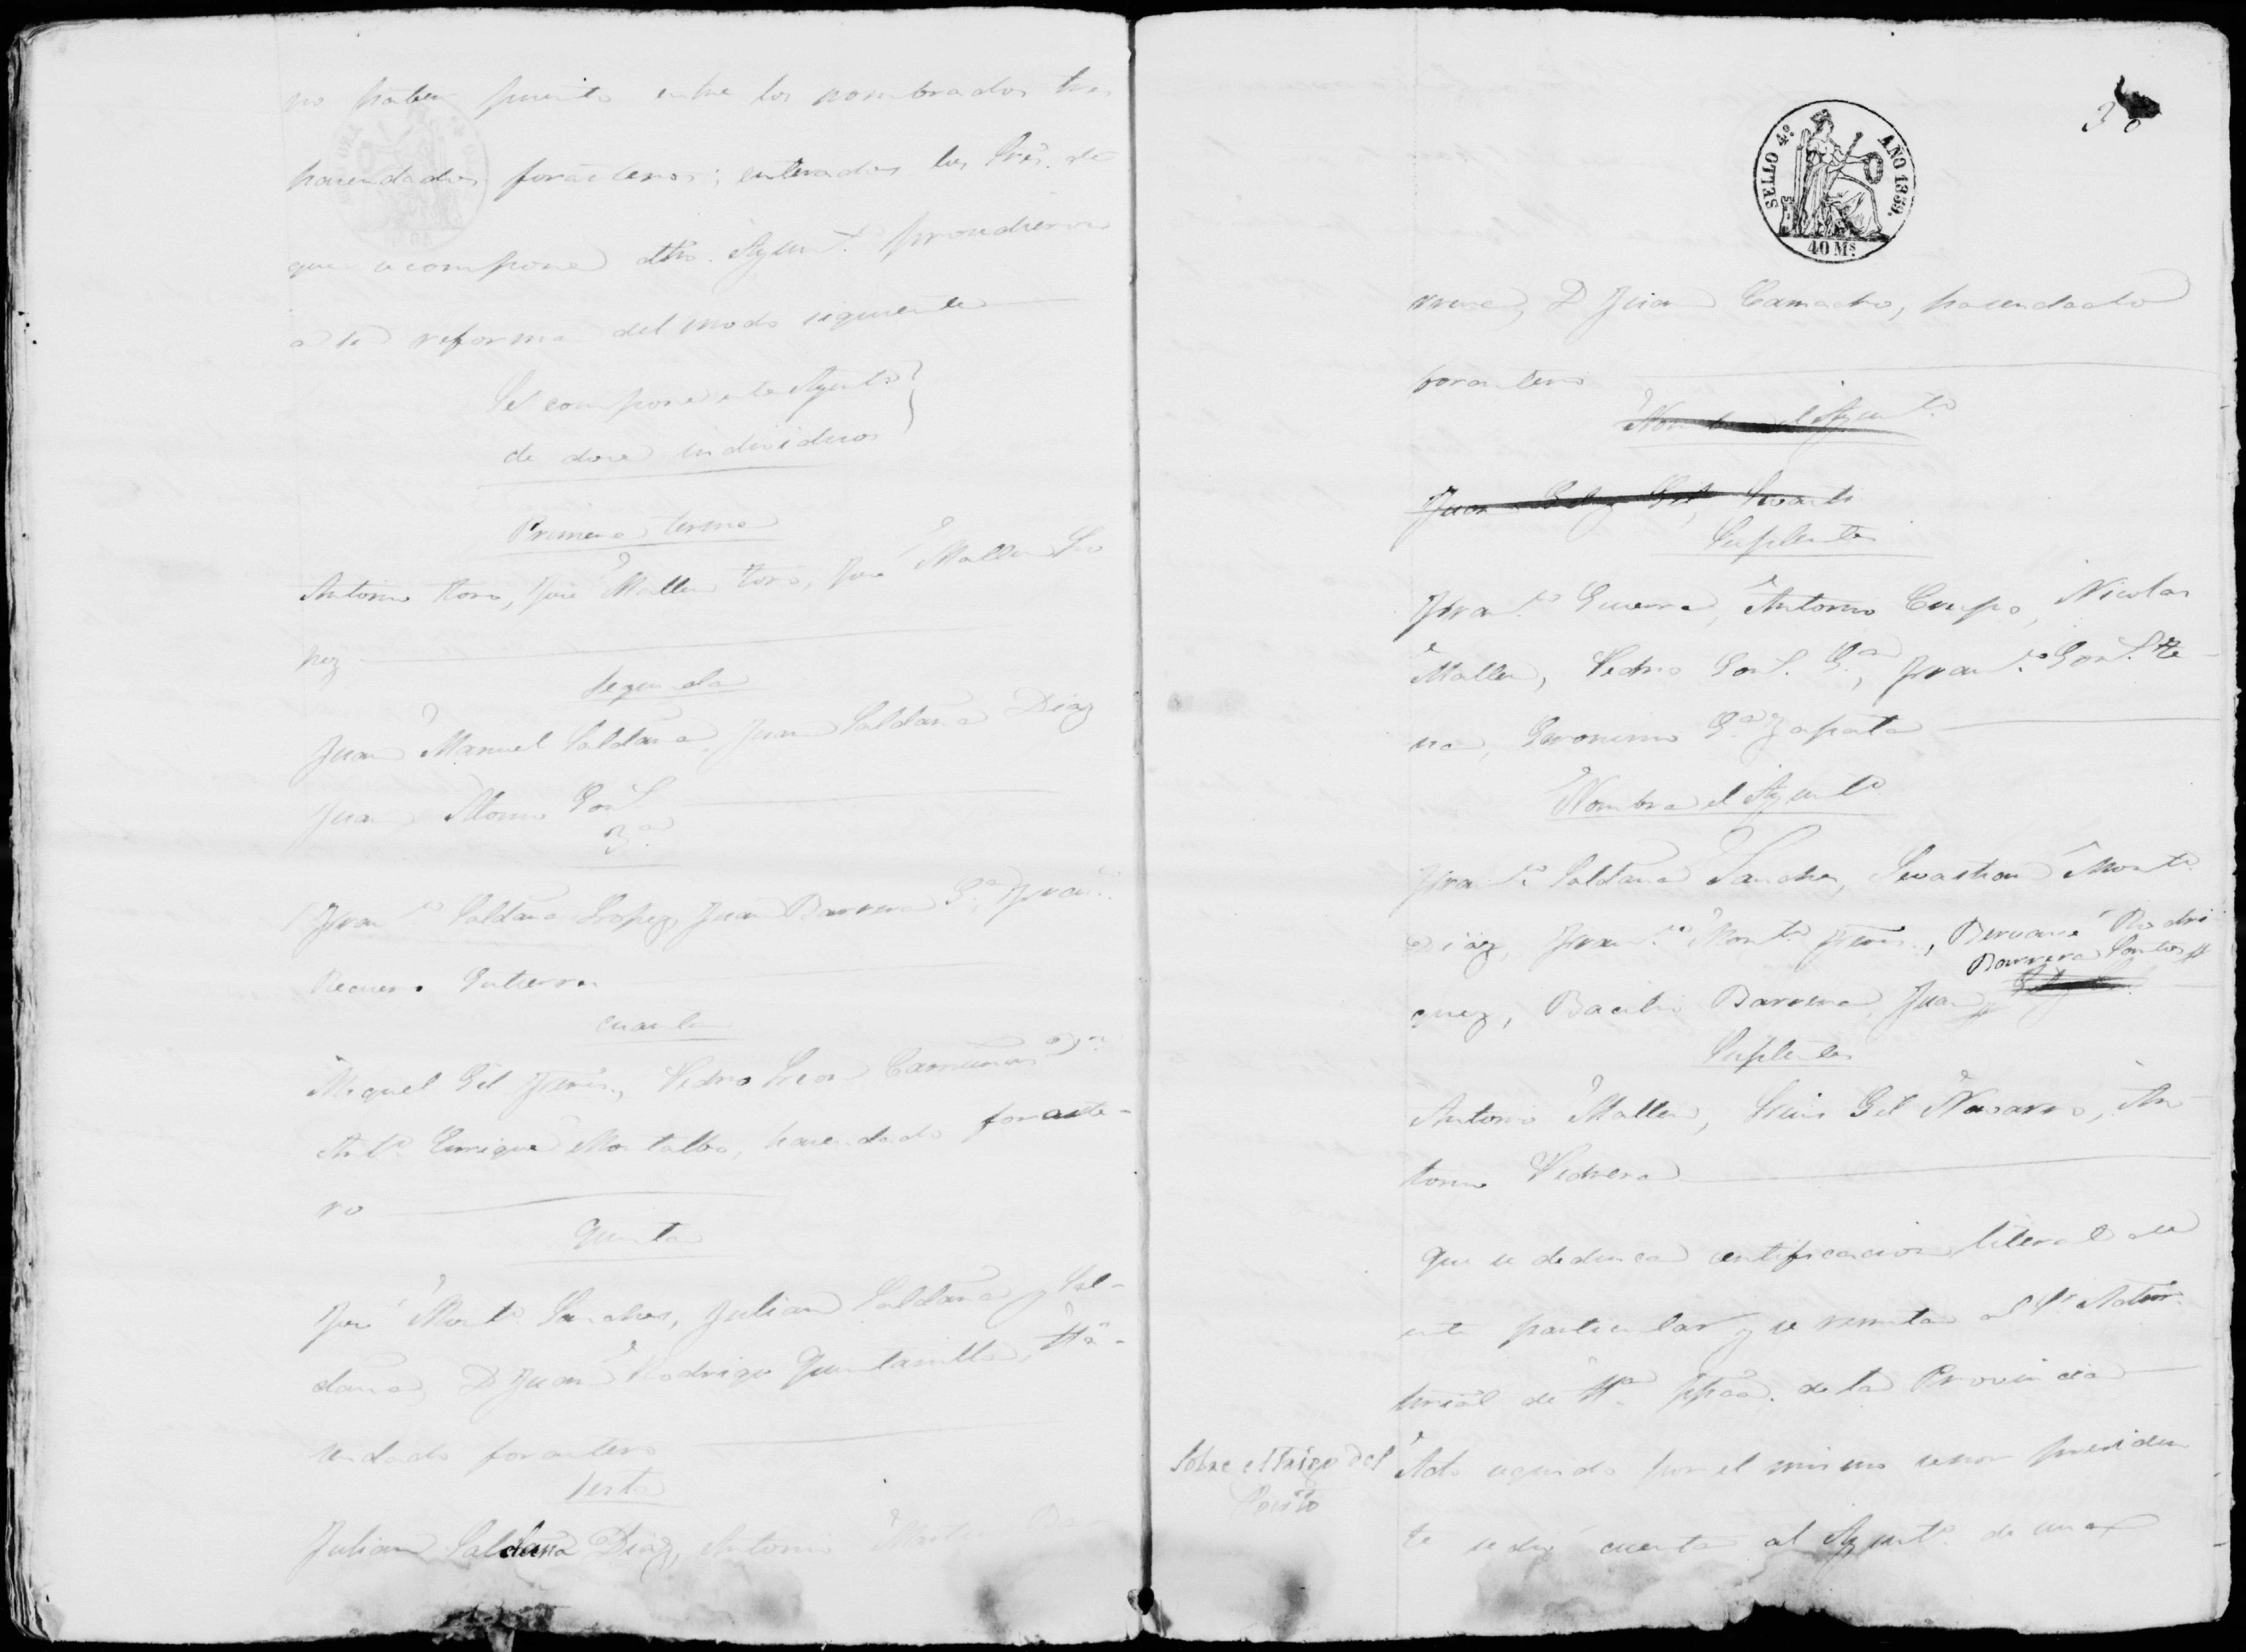 no haber puesto entre los nombrados tres
hacendados forasteros; enterados los Sres. de
que se compone dho. Ayunt.º procedieron
a la reforma del modo siguiente
Se compone este Ayunt.º
de doce individuos
Primera terna
Antonio Toro, José Mallen Toro, José Mallen Lo
pez
segunda
Juan Manuel Saldaña, Juan Saldaña Diaz
Juan Alonso Gonz.
3.ª
Fran.co Saldaña Lopez, Juan Barrera G.ª, Fran.co
Recuero Gutierrez
cuarta
Miguel Gil, Pedro Leon Camuñas D.n
Ant.º Enrique Montalbo, hacendado foraste-
ro
Quinta
José Mont.º Sanchez, Julian Saldaña y Sal-
daña, D Juan Rodrigo Quintanilla, Ha-
cendado forastero
Sesta
Julian Saldaña Diaz, Antonio
30
SELLO 4º AÑO 1859.
40 Ms
D Juan Camacho, hacendado
forastero
Nombra el Ayunt.º
Juan Gil
Suplentes
Fran.co Guerra, Antonio Crespo, Nicolas
Mallen, Pedro Gonz. G.ª, Fran.co Gonz. Te
na, Geronimo G.ª Zapata
Nombra el Ayunt.º
Fran.co Saldaña Sanchez, Sevastian Mont.º
Diaz, Fran.co Mont.º, Bernavé Rodri
Barrera Santos
quez, Bacilio Barrera, Juan
Suplentes
Antonio Mallen, Luis Gil Navarro, An
tonio Pedrera
Que se deduzca certificacion literal de
este particular y se remita al Sr. Admi
de H.ª de la Provincia
Sobre el trigo del
Posito
Acto seguido por el mismo señor presiden
te se dió cuenta al Ayunt.º de una